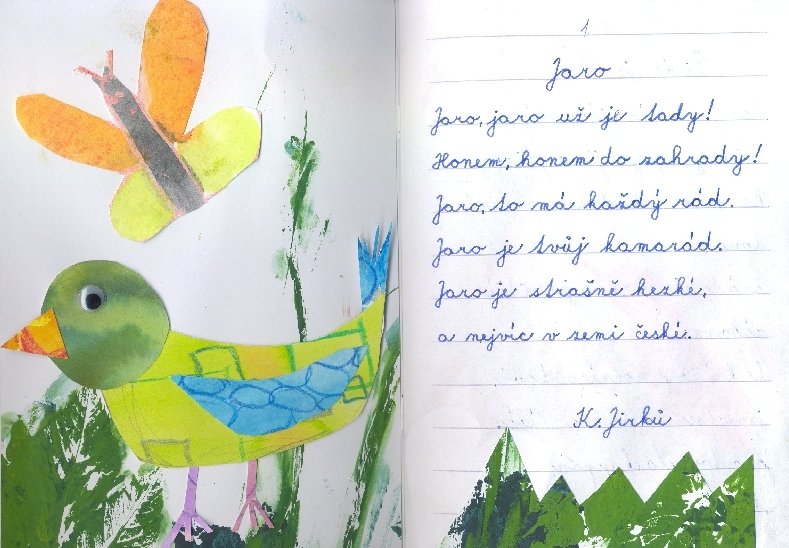 1
Jaro
Jaro, jaro už je tady!
Honem, honem do zahrady!
Jaro, to má každý rád.
Jaro je tvůj kamarád.
Jaro je strašně hezké,
a nejvíc v zemi české.
K. Jirků